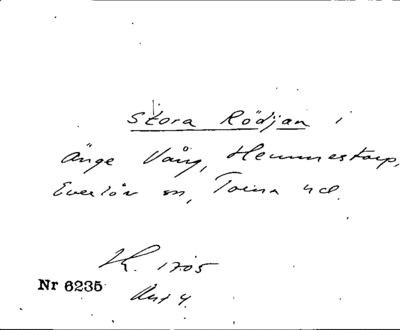 Stora Rödjan i
Änge Vång, Hemmestorp,
Everlöv sn, Torna hd.
K. 1705
Nr 6235
Akt 4.